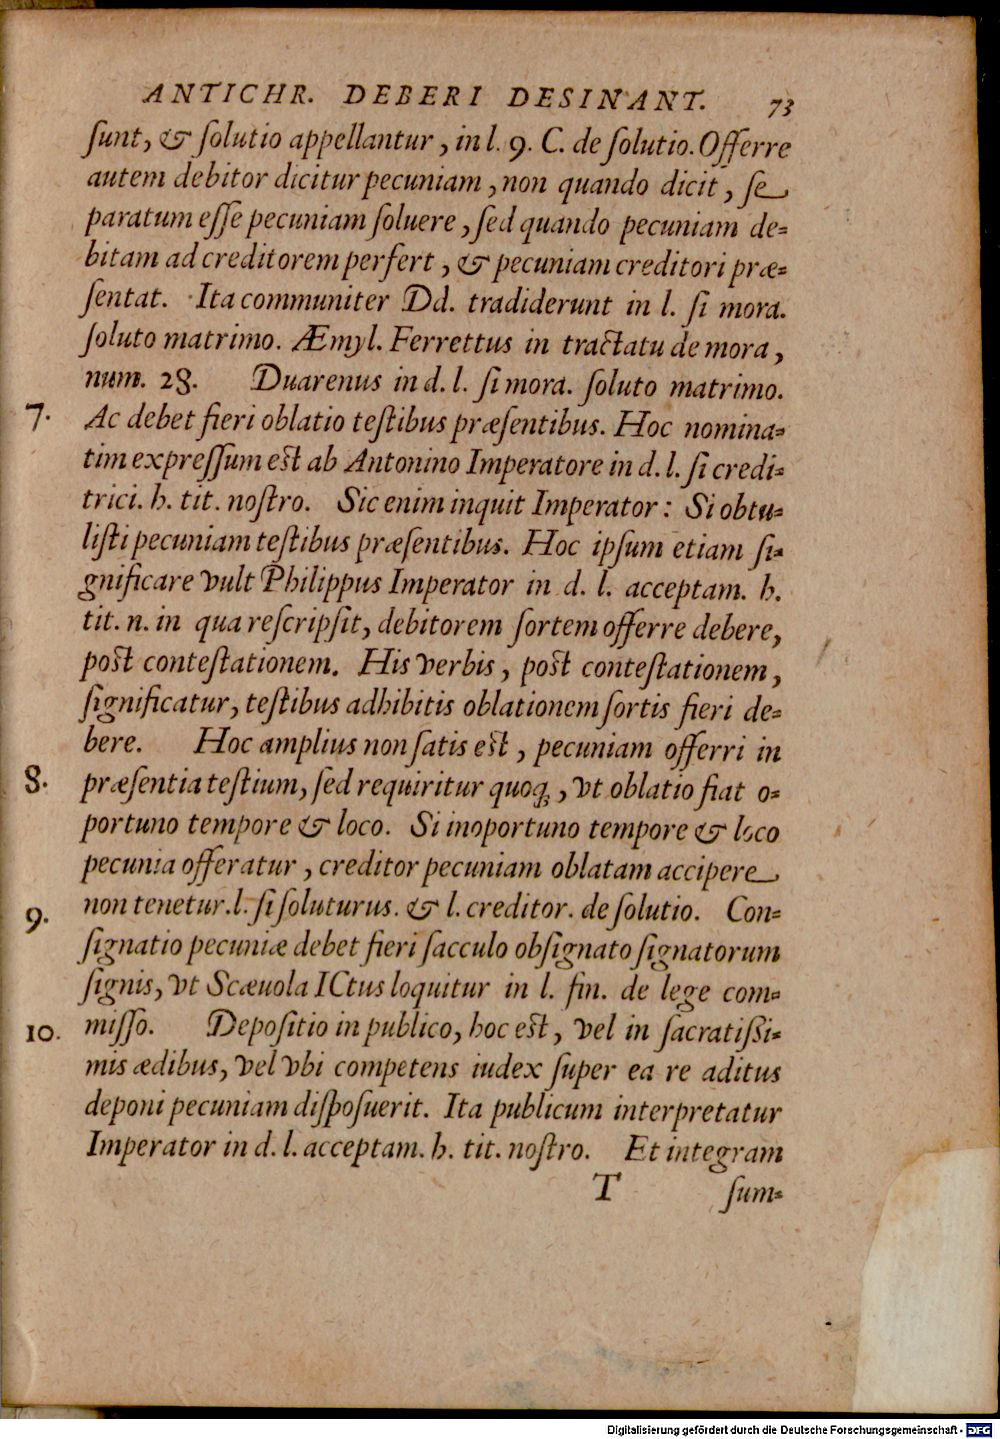 ANTICHR. DEBERI DESINANT. 73
ſunt, & ſolutio appellantur, in l. 9. C. de ſolutio. Offerre
autem debitor dicitur pecuniam, non quando dicit, ſe
paratum eſſe pecuniam ſoluere, ſed quando pecuniam de=
bitam ad creditorem perfert, & pecuniam creditori præ=
ſentat. Ita communiter Dd. tradiderunt in l. ſi mora.
ſoluto matrimo. Æmyl. Ferrettus in tractatu de mora,
num. 28. Duarenus in d. l. ſi mora. ſoluto matrimo.
7. Ac debet fieri oblatio teſtibus præſentibus. Hoc nomina=
tim expreſſum est ab Antonino Imperatore in d. l. ſi credi=
trici. h. tit. noſtro. Sic enim inquit Imperator: Si obtu=
liſti pecuniam teſtibus præſentibus. Hoc ipſum etiam ſi=
gnificare vult Philippus Imperator in d. l. acceptam. h.
tit. n. in qua reſcripſit, debitorem ſortem offerre debere,
post conteſtationem. His verbis, post conteſtationem,
ſignificatur, teſtibus adhibitis oblationem ſortis fieri de=
bere. Hoc amplius non ſatis est, pecuniam offerri in
8. præſentia teſtium, ſed requiritur quoq;, vt oblatio fiat o=
portuno tempore & loco. Si inoportuno tempore & loco
pecunia offeratur, creditor pecuniam oblatam accipere
9. non tenetur. l. ſi ſoluturus. & l. creditor. de ſolutio. Con=
ſignatio pecuniæ debet fieri ſacculo obſignato ſignatorum
ſignis, vt Scæuola ICtus loquitur in l. fin. de lege com=
10. miſſo. Depoſitio in publico, hoc est, vel in ſacratißi=
mis ædibus, vel vbi competens iudex ſuper ea re aditus
deponi pecuniam diſpoſuerit. Ita publicum interpretatur
Imperator in d. l. acceptam. h. tit. noſtro. Et integram
T ſum=
Digitalisierung gefördert durch die Deutsche Forschungsgemeinschaft - DFG